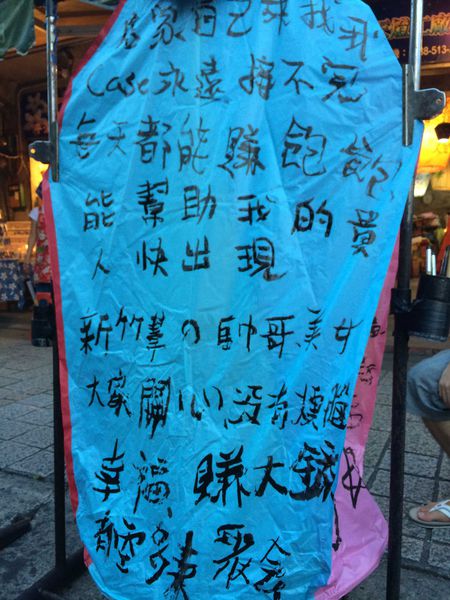 客家自己來找我
Case永遠接不完
每天都能賺飽飽
能幫助我的貴
人快出現
新竹拳の帥哥美女
大家開心沒有煩惱
幸福 賺大錢
聚會
38-513